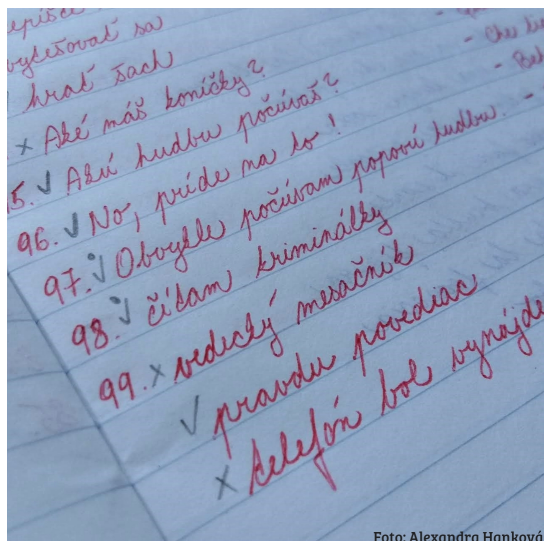 vyletovať sa
hrať šach
x Aké máš koníčky?
5. ✓ Akú hudbu počúvaš?
96. ✓ No, príde na to!
97. ✓ Obvykle počúvam popovú hudbu. -
98. ✓ čítam kriminálky
99. x vedecký mesačník
✓ pravdu povediac
x telefón bol vynájde
- Bel
Foto: Alexandra Hanková